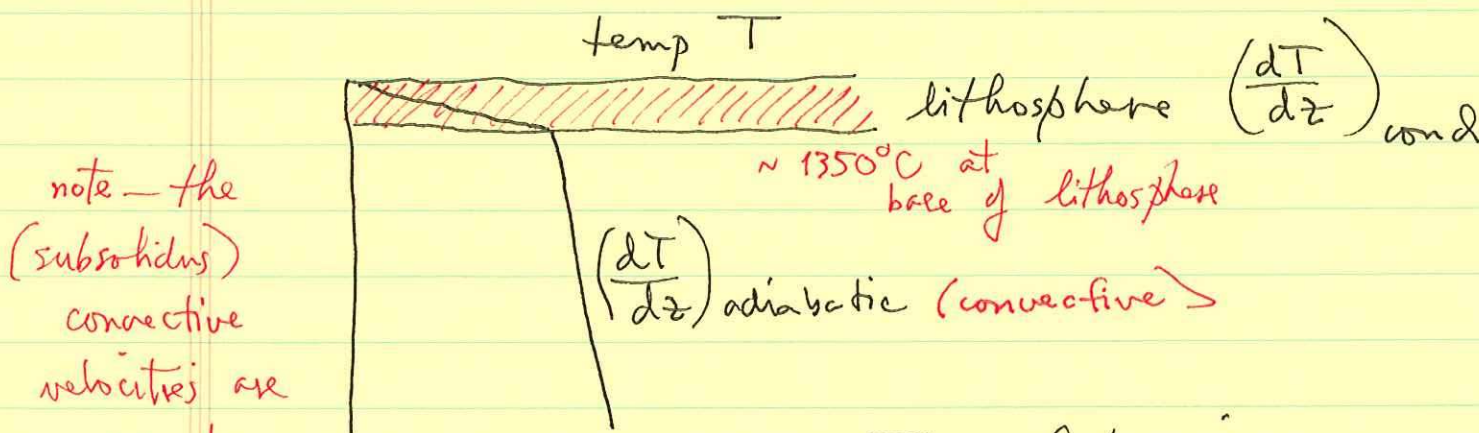 temp T
lithosphere (dT/dz)cond
~ 1350°C at
base of lithosphere
note – the
(subsolidus)
convective
velocities are
(dT/dz) adiabatic (convective)